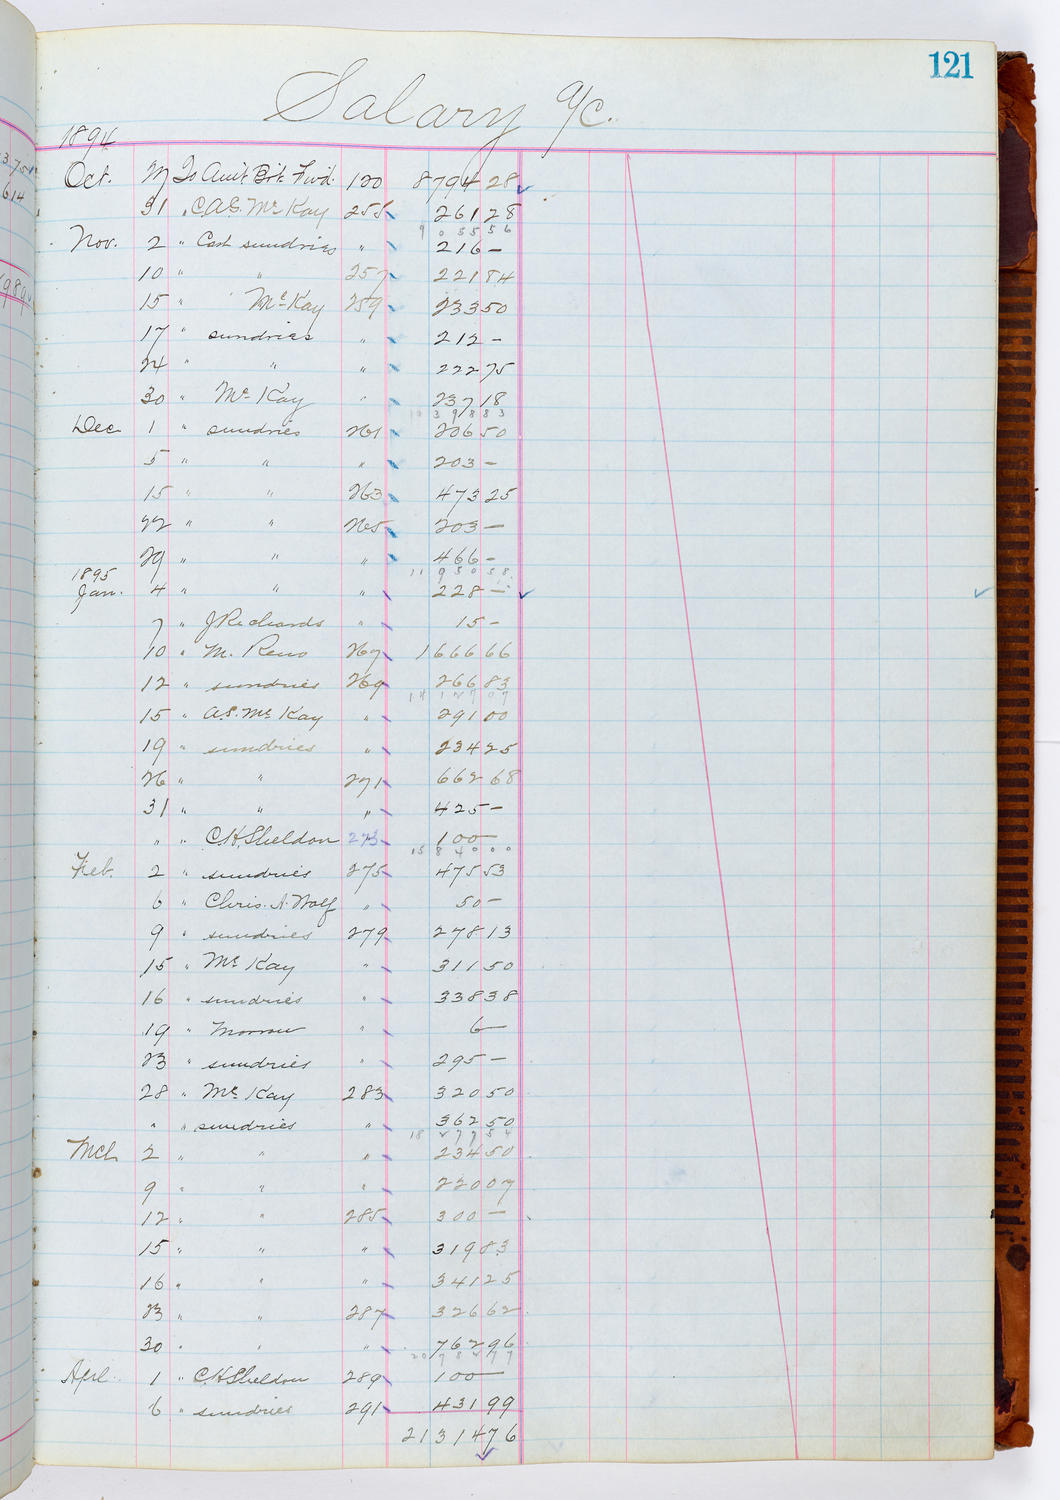 121
Salary a/c.
1894
Oct. M To Am't Brt. Fwd. 120 8794 28
31 " C.A.S. McKay 255 261 28
9 0 5 5 5 6
Nov. 2 " Cash sundries " 216 –
10 " " 257 221 84
15 " McKay 259 233 50
17 " sundries " 212 –
24 " " " 222 75
30 " McKay " 237 18
10 3 9 8 8 3
Dec 1 " sundries 261 206 50
5 " " " 203 –
15 " " 263 473 25
22 " " 265 203 –
29 " " " 466 –
11 9 5 0 5 8
1895
Jan. 4 " " " 228 –
7 " J Richards " 15 –
10 " M. Reno 267 1666 66
12 " sundries 269 266 83
14 1 2 7 0 7
15 " A.S. McKay " 291 00
19 " sundries " 234 25
26 " " 271 662 68
31 " " " 425 –
" " C.H. Sheldon 273 100 –
15 8 4 0 0 0
Feb. 2 " sundries 275 475 53
6 " Chris. A. Wolf " 50 –
9 " sundries 279 278 13
15 " McKay " 311 50
16 " sundries " 338 38
19 " Morrow " 6 –
23 " sundries " 295 –
28 " McKay 283 320 50
" " sundries " 362 50
18 2 7 7 5 4
Mch 2 " " " 234 50
9 " " " 220 07
12 " " 285 300 –
15 " " " 319 83
16 " " " 341 25
23 " " 287 326 62
30 " " " 762 96
20 7 8 2 7 7
Apl. 1 " C.H. Sheldon 289 100 –
6 " sundries 291 431 99
21314 76